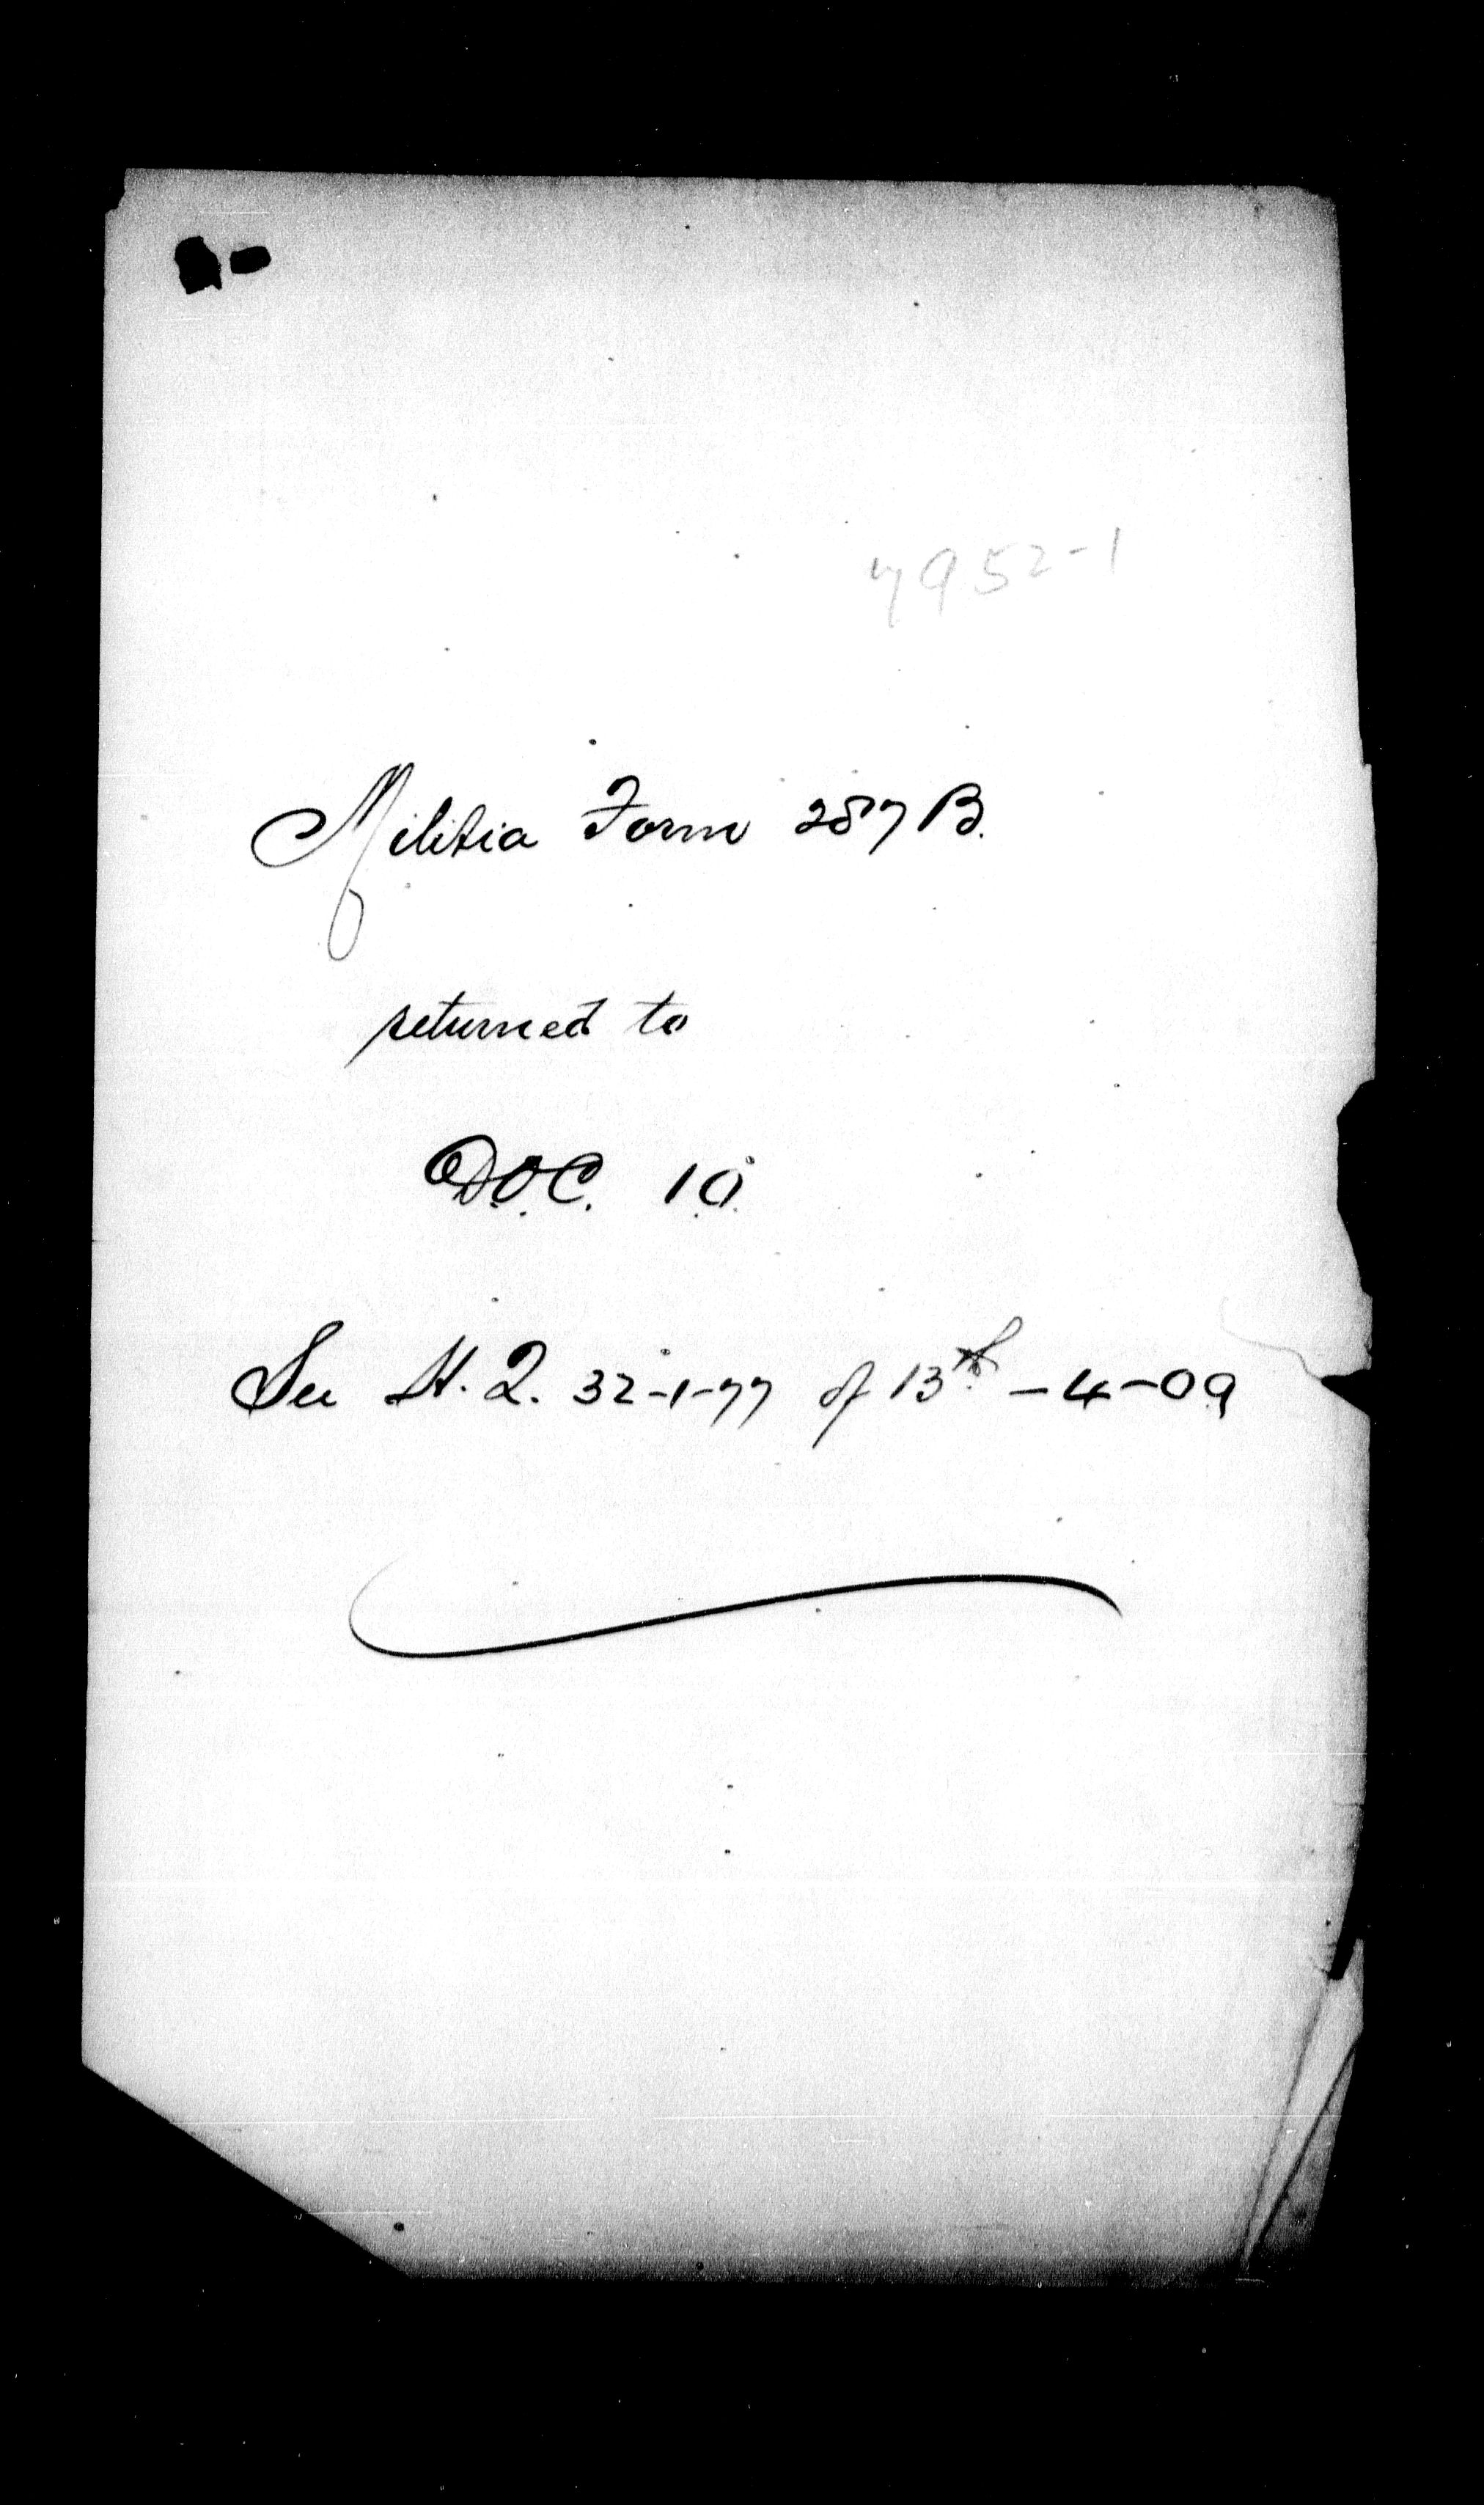 7952-1
Militia Form 287 B.
returned to
D.O.C. 10.
See H. Q. 32-1-77 of 13th - 4 - 09